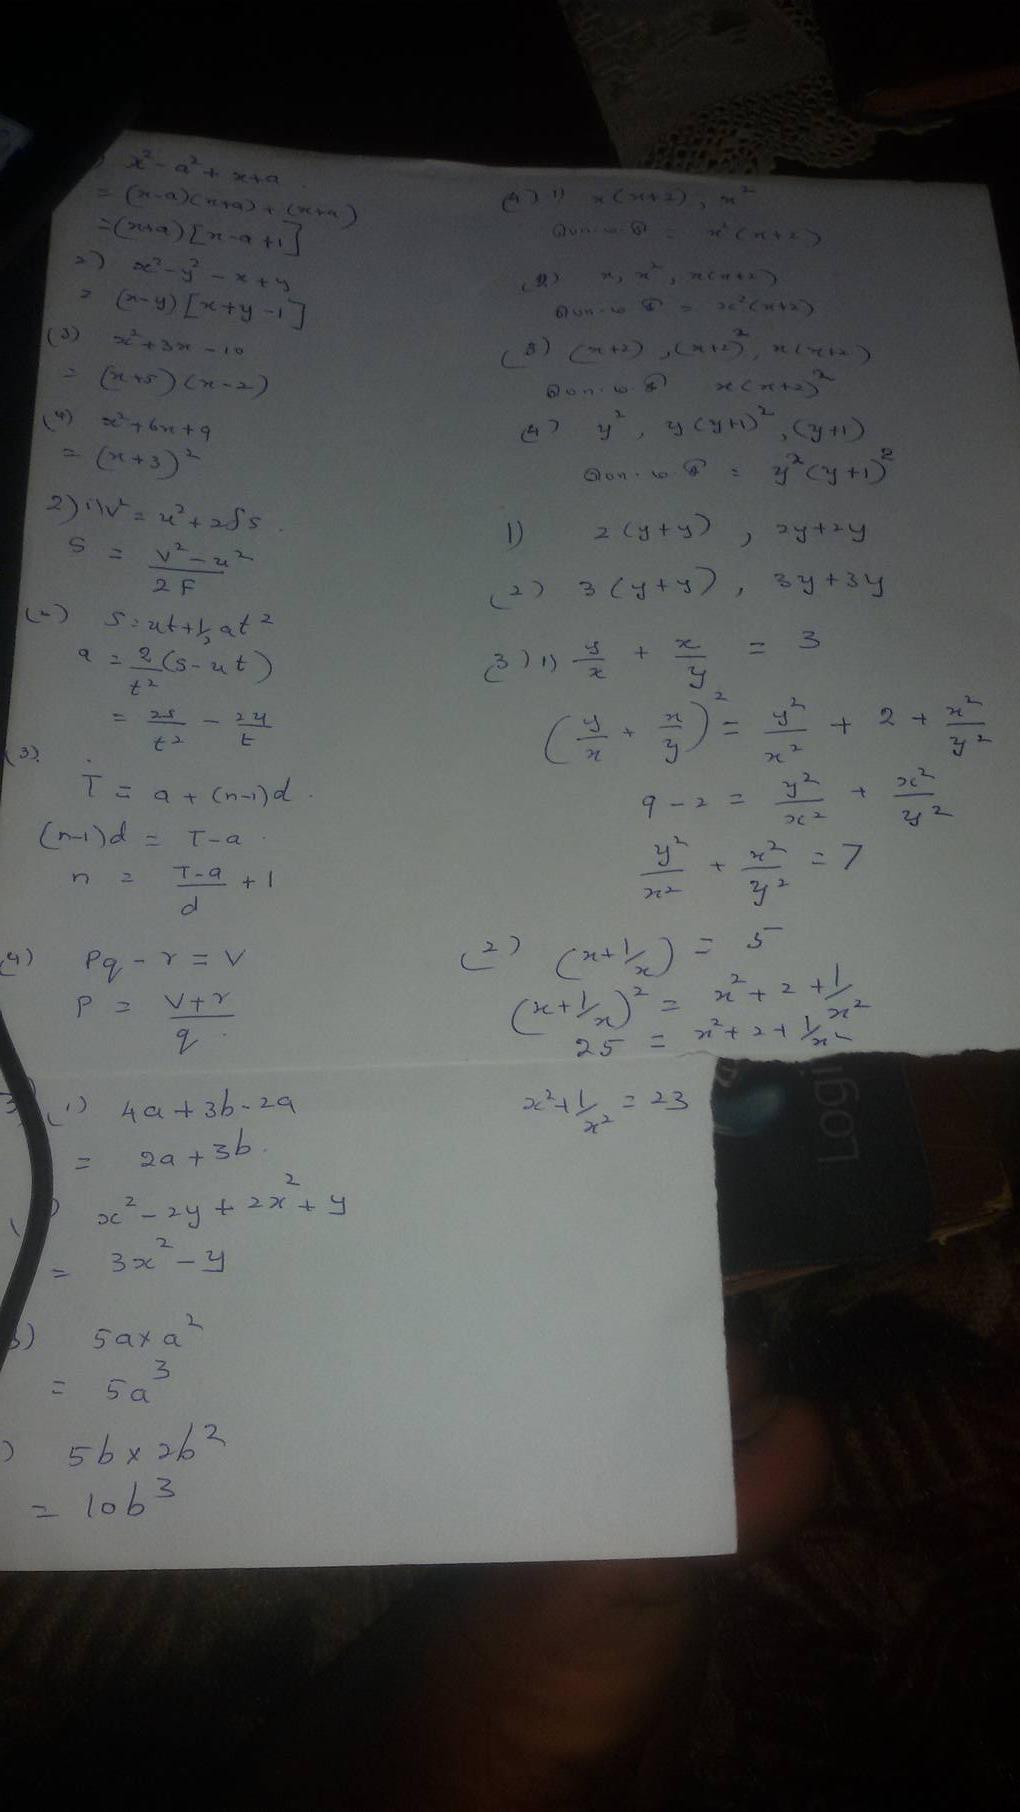 x² - a² + x+a
= (x-a)(x+a) + (x+a)
= (x+a) [x-a+1]
2) x² - y² - x + y
= (x-y) [x+y-1]
(3) x² + 3x - 10
= (x+5)(x-2)
(4) x² + 6x + 9
= (x+3)²
2) 1) v² = u² + 2fs
s = v² - u² / 2F
s = ut + 1/2 at²
a = 2/t² (s - ut)
= 2s/t² - 2u/t
(3)
T = a + (n-1)d
(n-1)d = T-a
n = T-a/d + 1
(4) Pq - r = v
P = v+r/q
3) (1) 4a + 3b - 2a
= 2a + 3b
x² - 2y + 2x² + y
= 3x² - y
5a × a²
= 5a³
5b × 2b²
= 10b³
(4) 1) x(x+2), x²
= x²(x+2)
(2) x, x², x(x+2)
= x²(x+2)
(3) (x+2), (x+2)², x(x+2)
x(x+2)²
(4) y², y(y+1)², (y+1)
= y²(y+1)²
1) 2(y+y), 2y+2y
(2) 3(y+y), 3y+3y
(3) 1) y/x + x/y = 3
(y/x + x/y)² = y²/x² + 2 + x²/y²
9 - 2 = y²/x² + x²/y²
y²/x² + x²/y² = 7
(2) (x + 1/x) = 5
(x + 1/x)² = x² + 2 + 1/x²
25 = x² + 2 + 1/x²
x² + 1/x² = 23
Logi